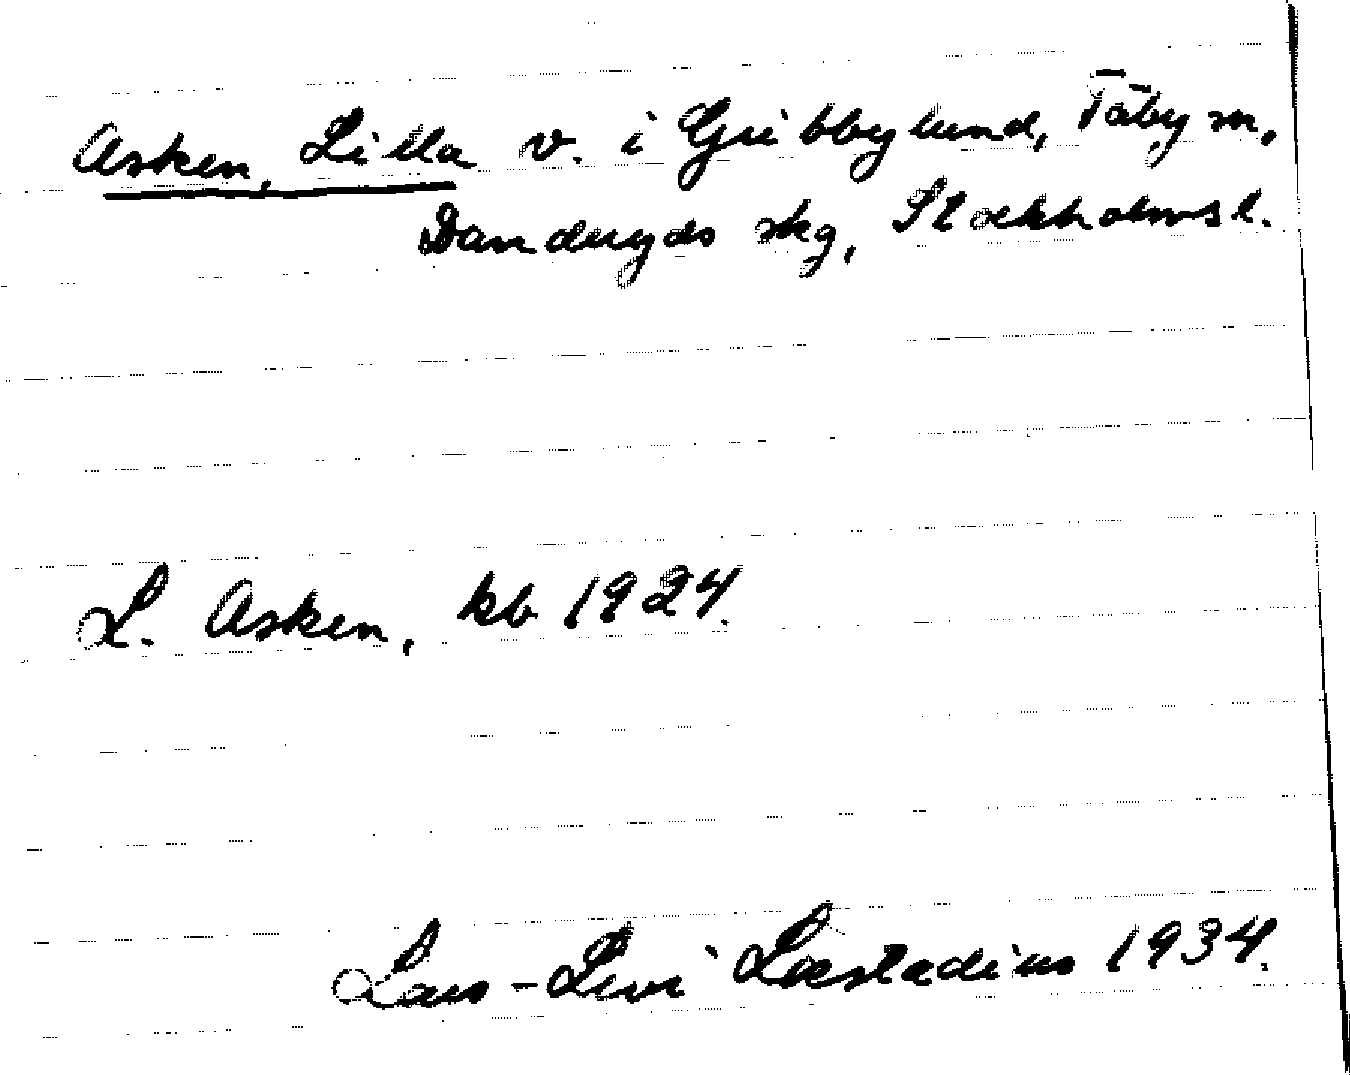 Asken, Lilla v. i Gribbylund, Täby sn,
Danderyds skg, Stockholms l.
L. Asken, kb 1924.
Lars-Levi Læstadius 1934.